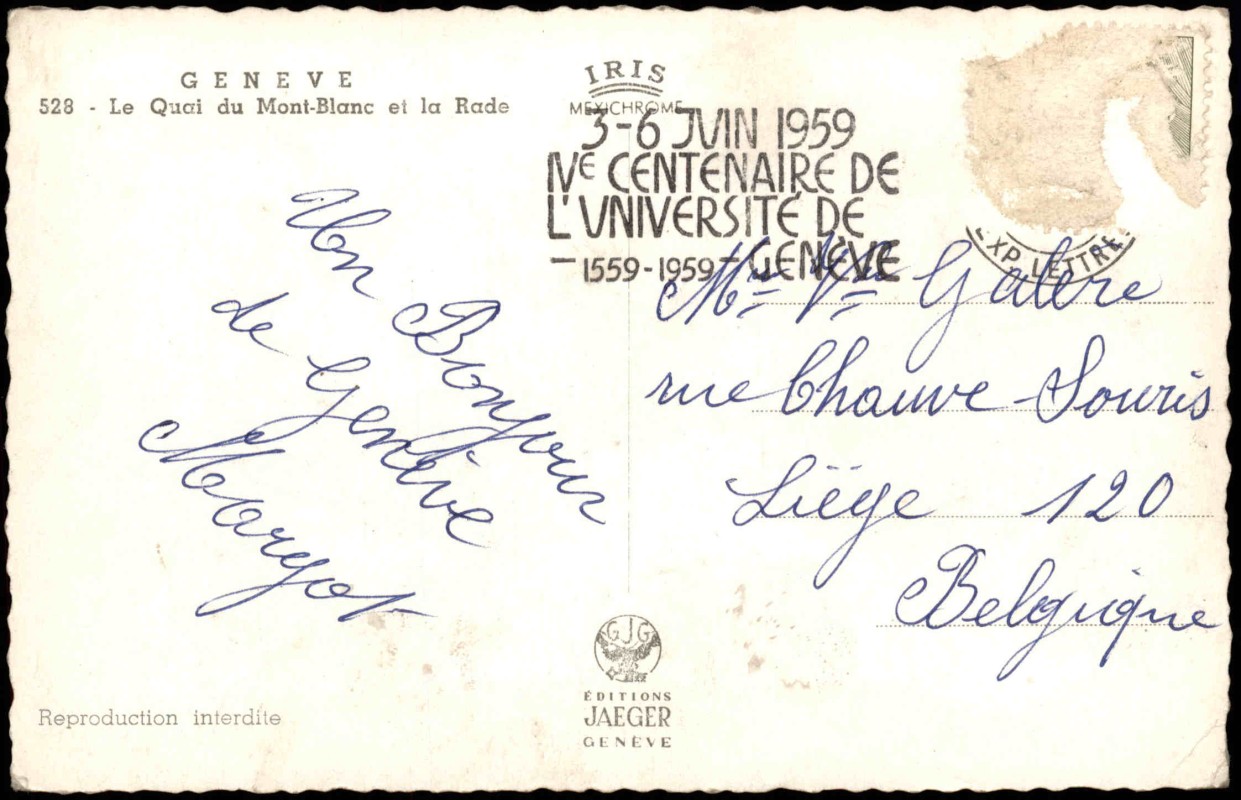 GENEVE
528 - Le Quai du Mont-Blanc et la Rade
IRIS
MEXICHROME
3-6 JUIN 1959
IVE CENTENAIRE DE
L'UNIVERSITÉ DE
- 1559-1959 - GENÈVE
EXP. LETTRE
Un Bonjour
de Genève
Margot
Mme Vve Galère
rue Chauve-Souris
Liège 120
Belgique
GJG
ÉDITIONS
JAEGER
GENÈVE
Reproduction interdite